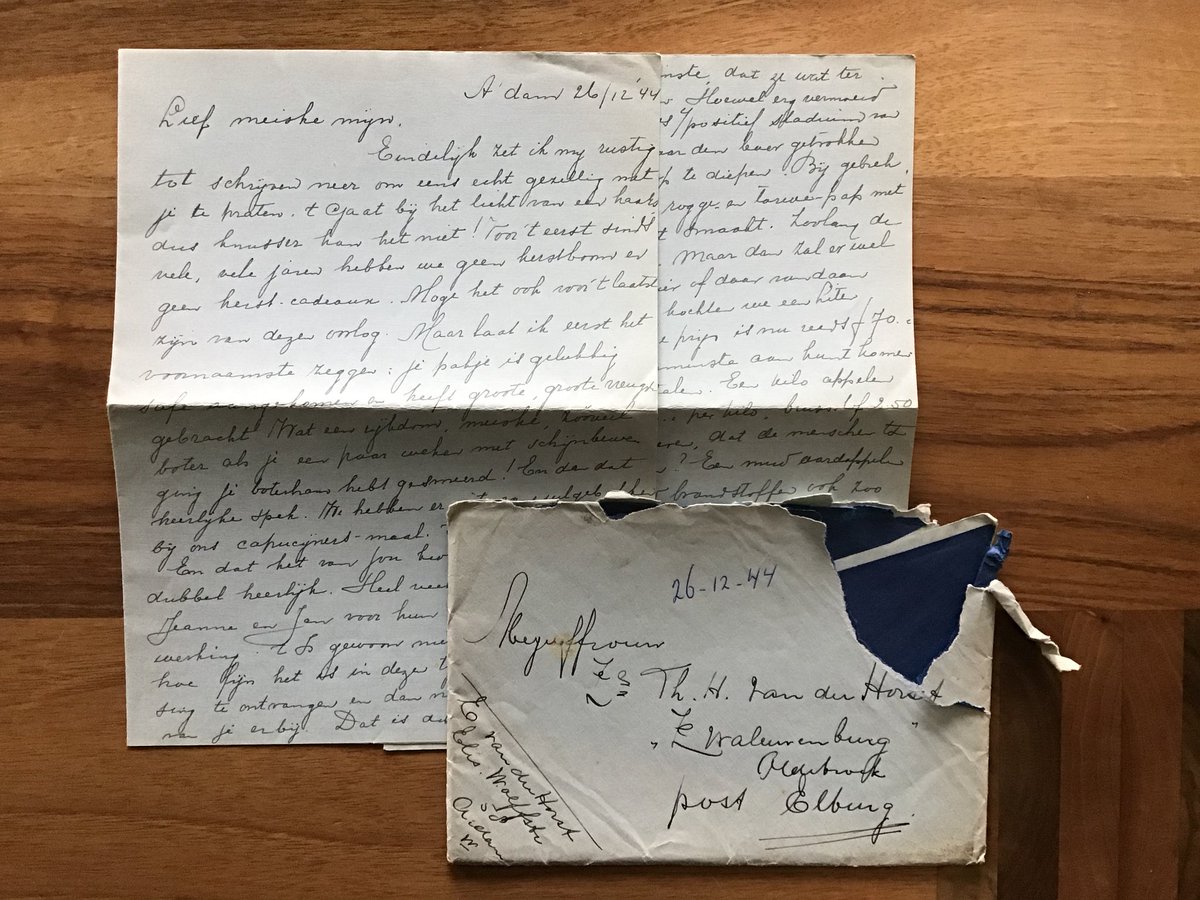 A'dam 26/12 '44
Lief meiske mijn,
Eindelijk zet ik my rustig
tot schrijven neer om eens echt gezellig met
je te praten. 't Gaat bij het licht van een kaars
dus knusser kan het niet! Voor 't eerst sinds
vele, vele jaren hebben we geen kerstboom en
geen kerst-cadeaux. Moge het ook voor 't laatst
zijn van dezen oorlog. Maar laat ik eerst het
voornaamste zeggen: je pakje is gelukkig
safe aangekomen en heeft groote, groote vreugd
gebracht. Wat een rijkdom, meiske, zooveel
boter als je een paar weken met schijnbewe
ging je boterham hebt gesmeerd! En dan dat
heerlijke spek. We hebben er
bij ons capucijners-maal.
En dat het van jou
dubbel heerlijk. Heel veel
Jeanne en Jan voor hun
werking. 't Is gewoon
hoe fijn het is in deze
sing te ontvangen en dan
van je erbij. Dat is
dat ze wat ter
Hoewel erg vermoeid
positief stadium van
den boer getrokken
te diepen. Bij gebrek
rogge- en tarwe-pap met
smaakt. Zoolang de
Maar dan zal er wel
of daar vandaan
kochten we een liter
prijs is nu reeds f 70.-
aan kunt komen
Een kilo appelen
per kilo, f 2.50
dat de menschen
? Een mud aardappelen
brandstoffen ook zoo
26-12-44
Mejuffrouw
Th. H. van der Horst
"Waleurenburg"
Oldebroek
post Elburg.
E van der Horst
Adam